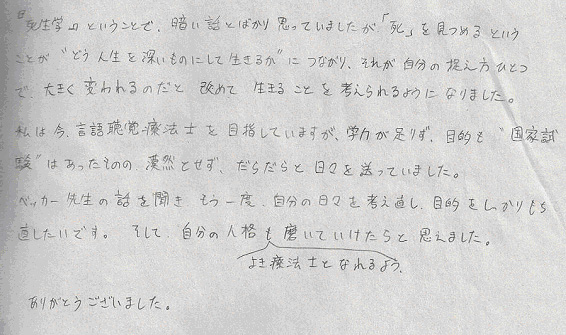 『死生学』ということで、暗い話とばかり思っていましたが、「死」を見つめるという
ことが“どう人生を深いものにして生きるか”につながり、それが自分の捉え方ひとつ
で、大きく変われるのだと改めて生きることを考えられるようになりました。
私は今、言語聴覚療法士を目指していますが、学力が足りず、目的も“国家試
験”はあったものの、漠然とせず、だらだらと日々を送っていました。
ベッカー先生の話を聞きもう一度、自分の日々を考え直し、目的をしっかりもち
直したいです。そして、自分の人格も磨いていけたらと思えました。
よき療法士となれるよう、
ありがとうございました。